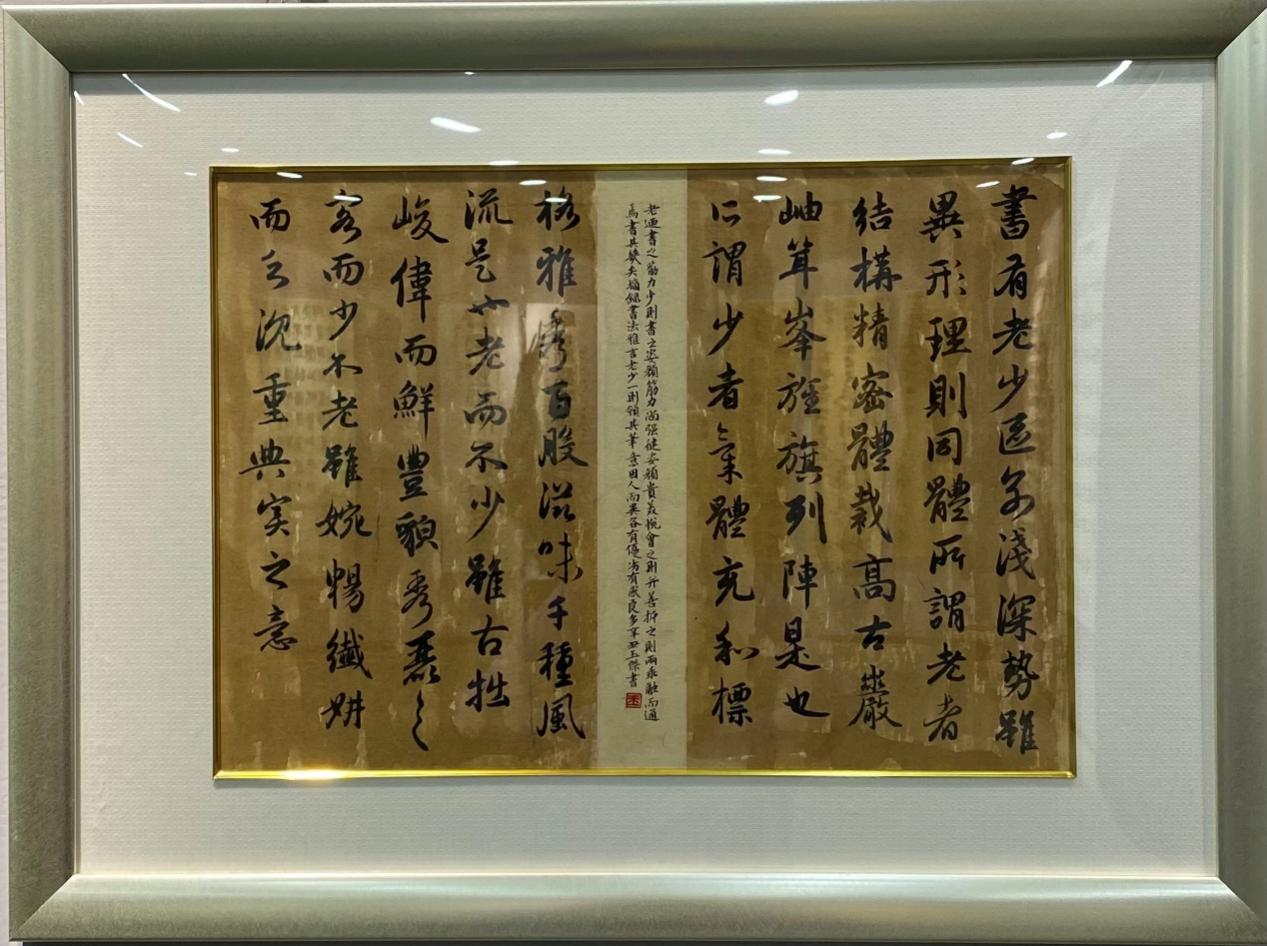 書有老少區別淺深勢雖
異形理則同體所謂老者
結構精密體裁高古巖
岫耸峯旌旗列陣是也
所謂少者氣體充和標
老迺書之筋力少則書之姿顏筋力尚强健姿顏貴美悅會之則并善折之則兩乖融而通
焉書其幾矣摘錄書法雅言老少一則領其筆意因人而異各有優劣有感良多辛丑玉傑書
格雅秀百般滋味千種風
流是也老而不少雖古拙
峻偉而鮮豐貌秀麗之
容而少不老雖婉暢纖妍
而乏沉重典實之意